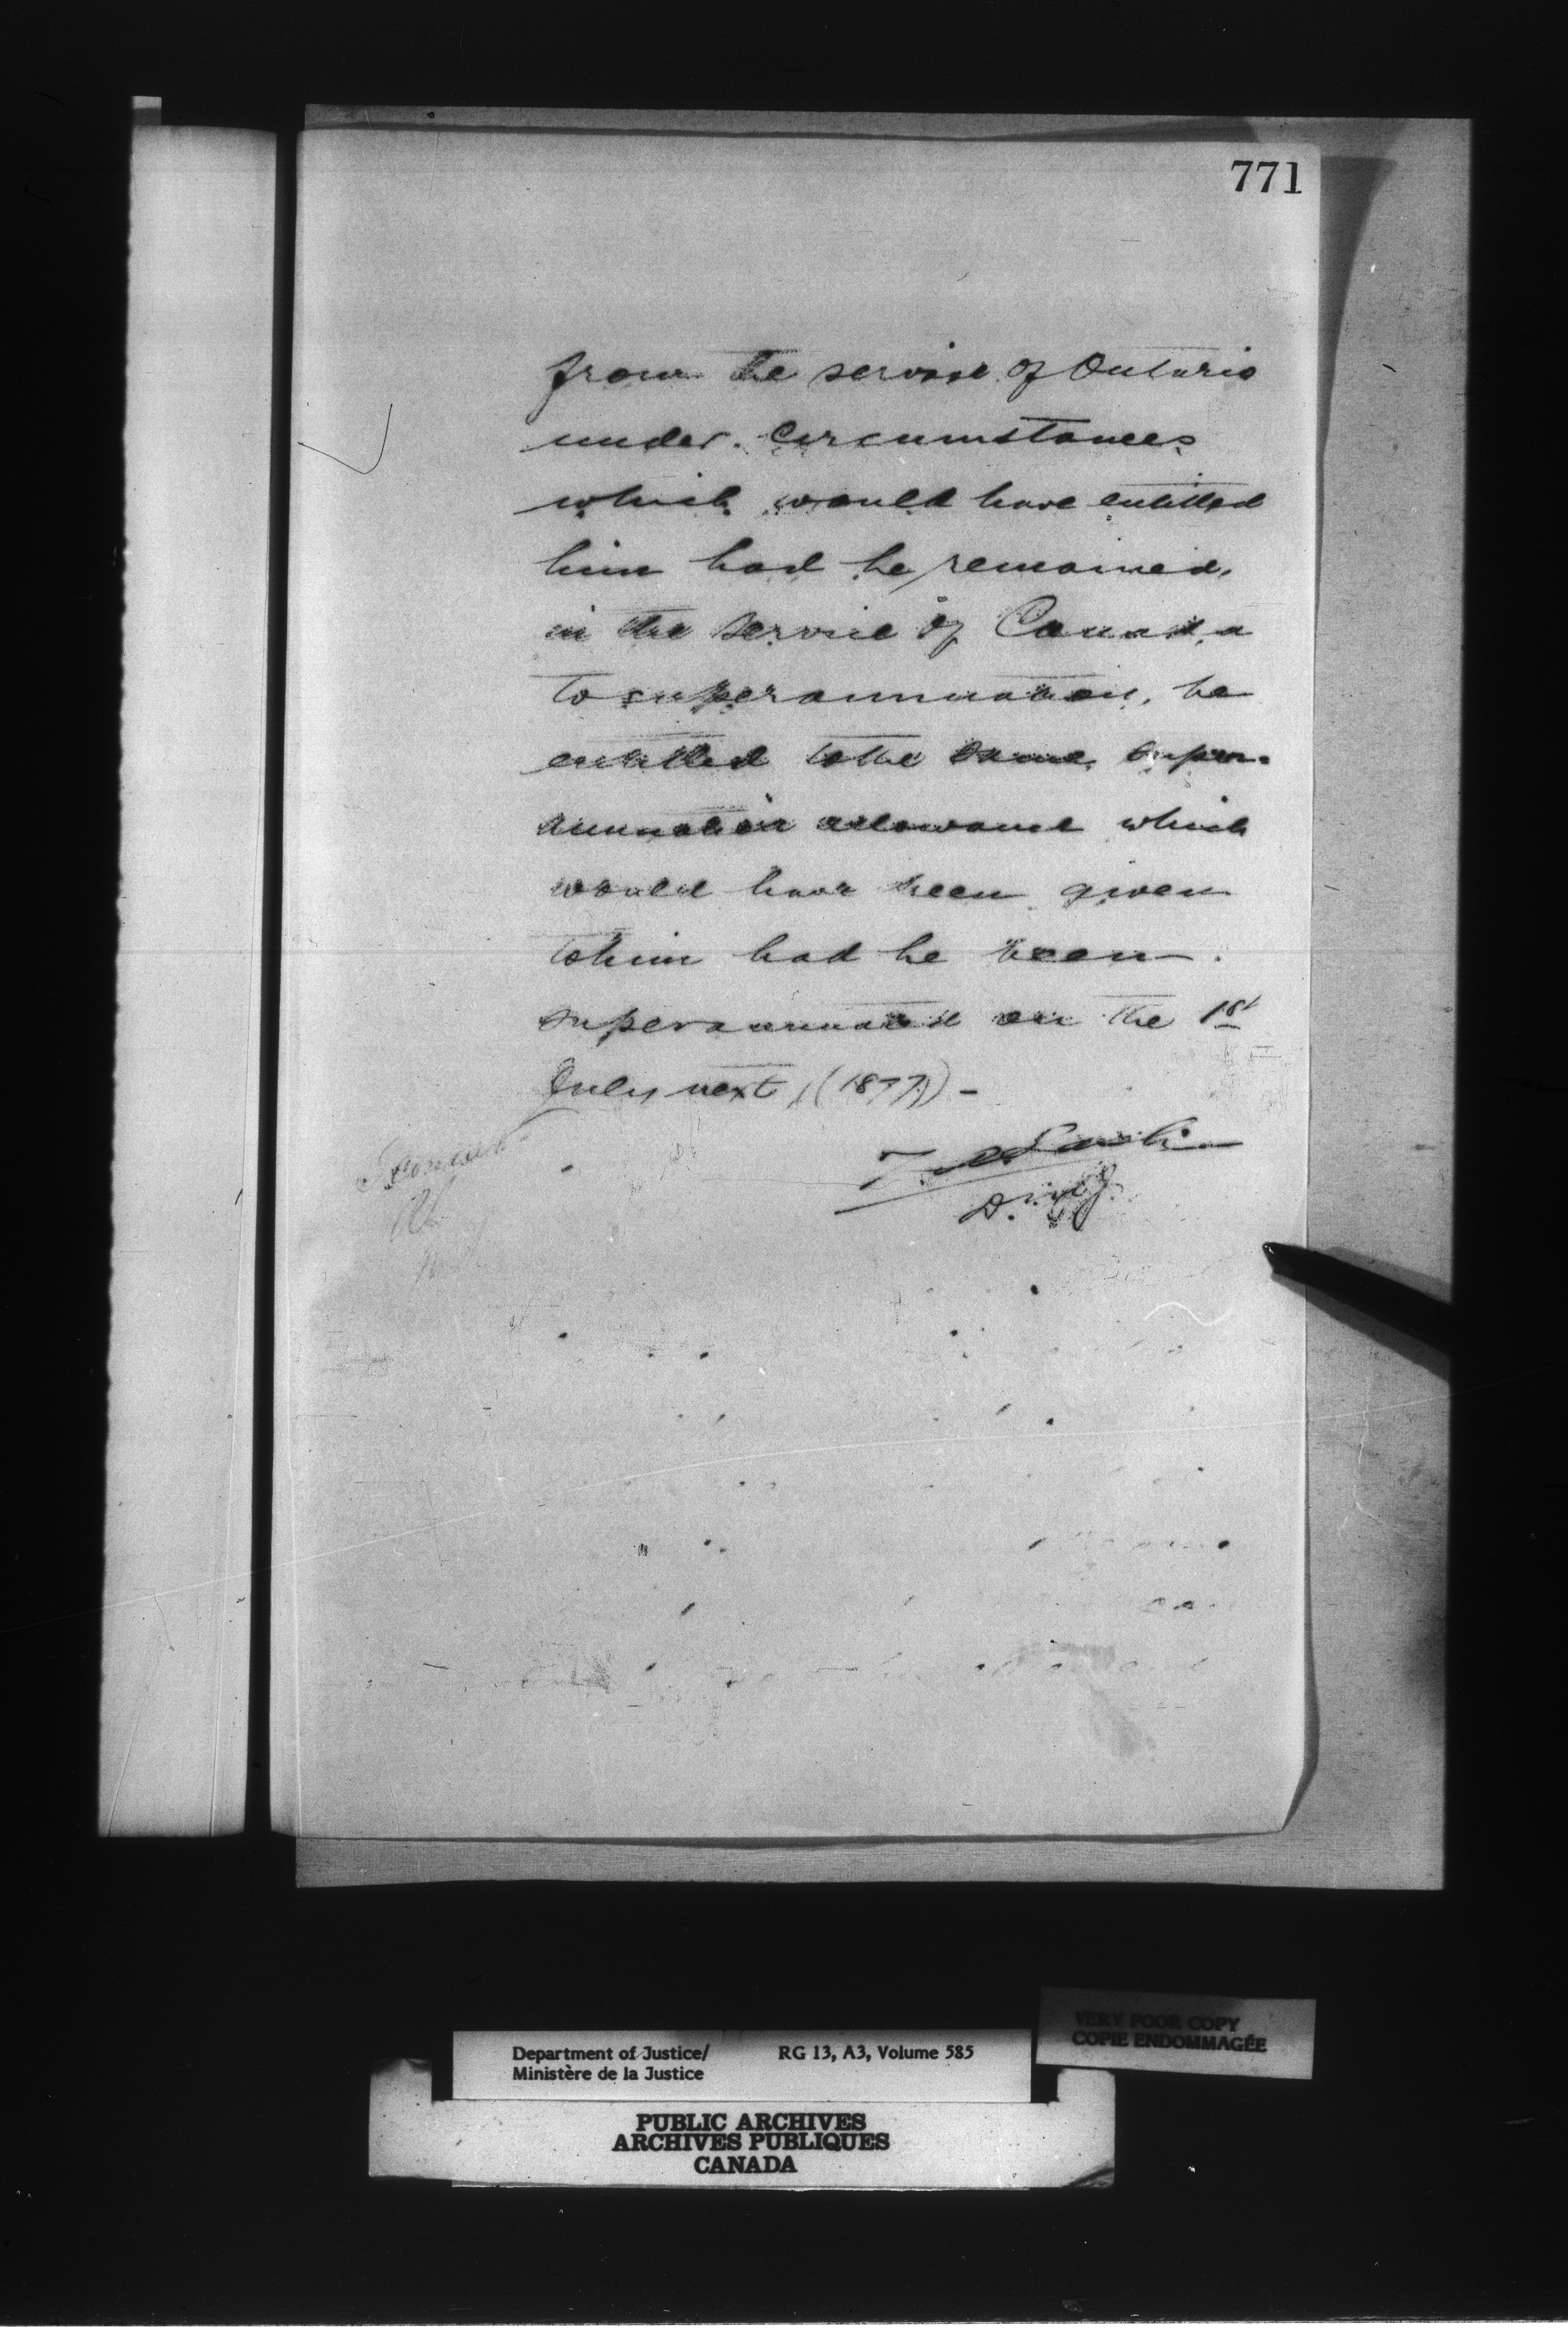 771
from the service of Ontario
under circumstances
which would have entitled
him had he remained
in the service of Canada
to superannuation, be
entitled to the same super-
annuation allowance which
would have been given
to him had he been
superannuated on the 1st
July next, (1877) -
D.
VERY POOR COPY
COPIE ENDOMMAGÉE
Department of Justice/ RG 13, A3, Volume 585
Ministère de la Justice
PUBLIC ARCHIVES
ARCHIVES PUBLIQUES
CANADA